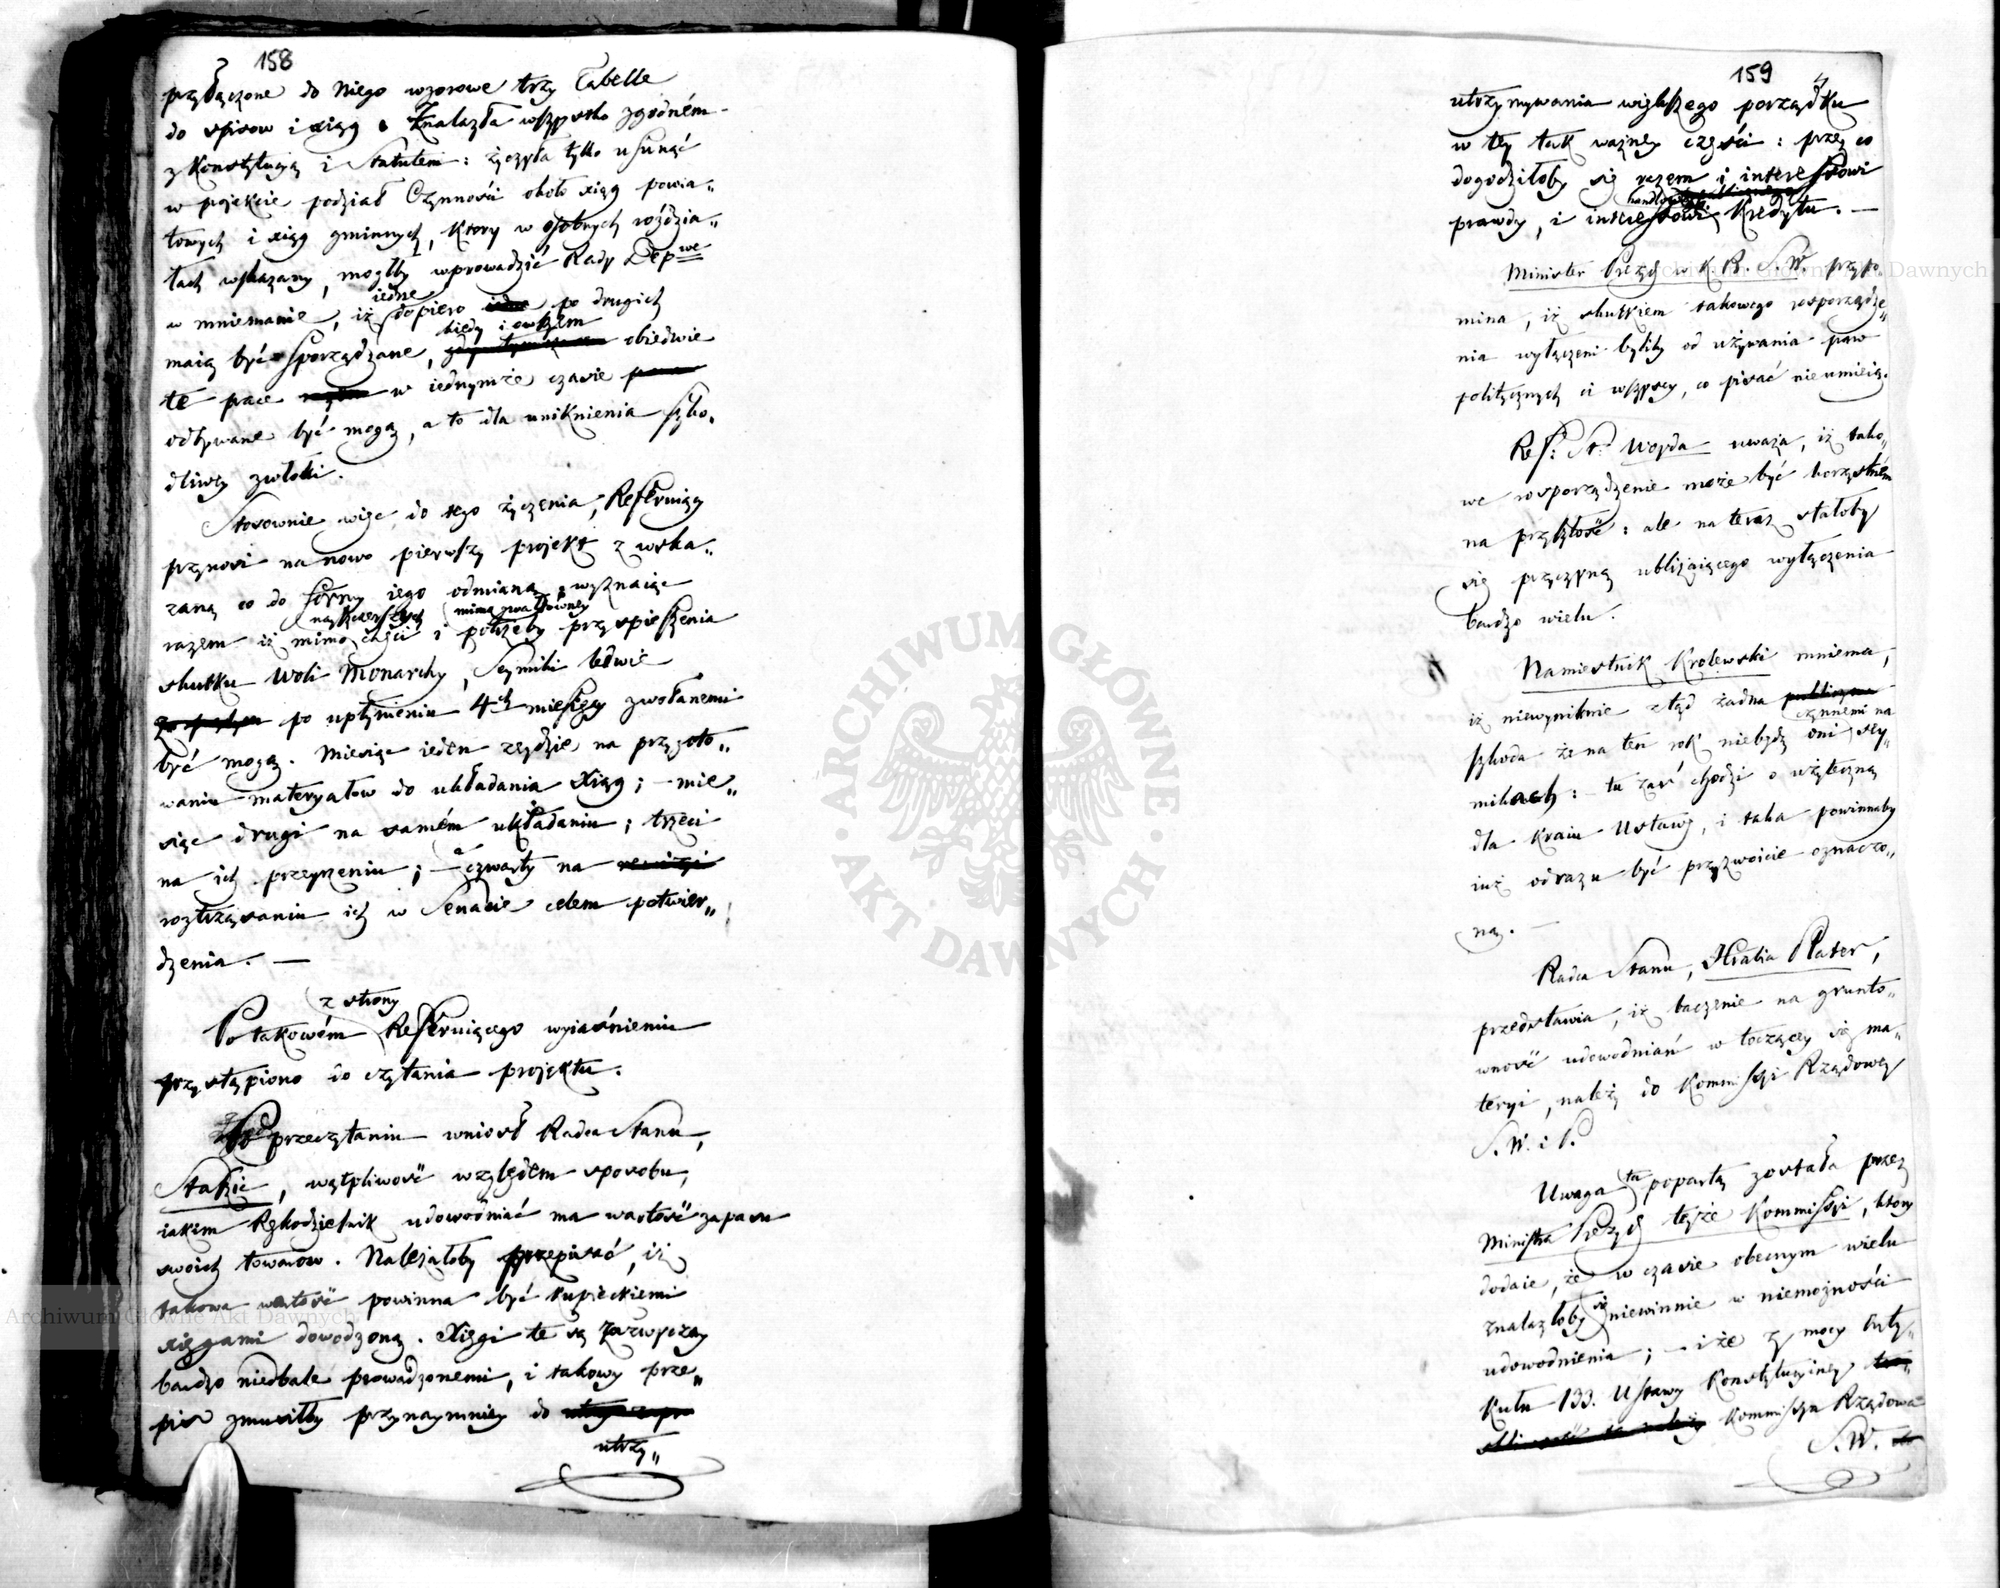 158
przyłączone do Niego wzorowe trzy Tabelle
do spisow i xiąg. Znalazła wszystko zgodném
z Konstytucyą i Statutem: życzyła tylko usunąć
w projekcie podział Czynności około xiąg powia„
towych i xiąg gminnych, ktory w osobnych roździa„
łach wskazany, mogłby wprowadzić Rady Dep.we
w mniemanie, iż iedne dopiero po drugich
maią być sporządzane, kiedy i owszem obiedwie
te prace w iednymże czasie
odbywane być mogą, a to dla uniknienia szko„
dliwey zwłoki.
Stosownie więc do tego życzenia, Referuiący
przynosi na nowo pierwszy projekt z wska„
zaną co do formy iego odmianą, wyznaiąc
razem iż mimo nayszczerszych chęci i mimo gwałtowney potrzeby przyspieszenia
skutku Woli Monarchy, Seymiki ledwie
po upłynieniu 4ch miesięcy zwołanemi
być mogą. Miesiąc ieden zeydzie na przygoto„
waniu materyałow do układania Xiąg; – mie„
siąc drugi na samém układaniu; trzeci
na ich przeyrzeniu; – a czwarty na
roztrząsaniu ich w Senacie celem potwier„
dzenia. —
Po takowém z strony Referuiącego wyiaśnieniu
przystąpiono do czytania projektu.
Po przeczytaniu wniosł Radca Stanu,
Staszic, wątpliwość względem sposobu,
iakim Rękodzielnik udowodniać ma wartość zapasu
swoich towarow. Należałoby przepisać, iż
takowa wartość powinna być kupieckiemi
xięgami dowodzoną. Xięgi te są zazwyczay
bardzo niedbale prowadzonemi, i takowy prze„
pis zmusiłby przynaymniey do
utrzy„
159
utrzymywania większego porządku
w tey tak ważney części: przez co
dogodziłoby się razem i interessowi
prawdy, i interessowi Kredytu. —
Minister Prezyd. w K. R. S. W. przypo„
mina, iż skutkiem takowego rosporządze„
nia wyłączeni byliby od używania praw
politycznych ci wszyscy, co pisać nieumieią.
Ref: St: Woyda uważa, iż tako„
we rosporządzenie może być korzystném
na przyszłość: ale na teraz stałoby
się przyczyną ubliżaiącego wyłączenia
bardzo wielu.
Namiestnik Krolewski mniema,
iż niewyniknie ztąd żadna
szkoda że na ten rok niebędą oni czynnemi na sey„
mikach: – tu zaś chodzi o użyteczną
dla Kraiu Ustawę, i taka powinnaby
iuż odrazu być przyzwoicie oznaczo„
ną. —
Radca Stanu, Hrabia Plater,
przedstawia, iż baczenie na grunto„
wność udowodniań w toczącey się ma„
teryi, należy do Kommissyi Rządowey
S. W. i P.
Uwaga ta popartą została przez
Ministra Prezyd. teyże Kommissyi, ktory
dodaie, że w czasie obecnym wielu
znalazłoby się niewinnie w niemożności
udowodnienia; – i że z mocy Arty„
kułu 133. Ustawy Konstytucyiney
Kommissya Rządowa
S. W.